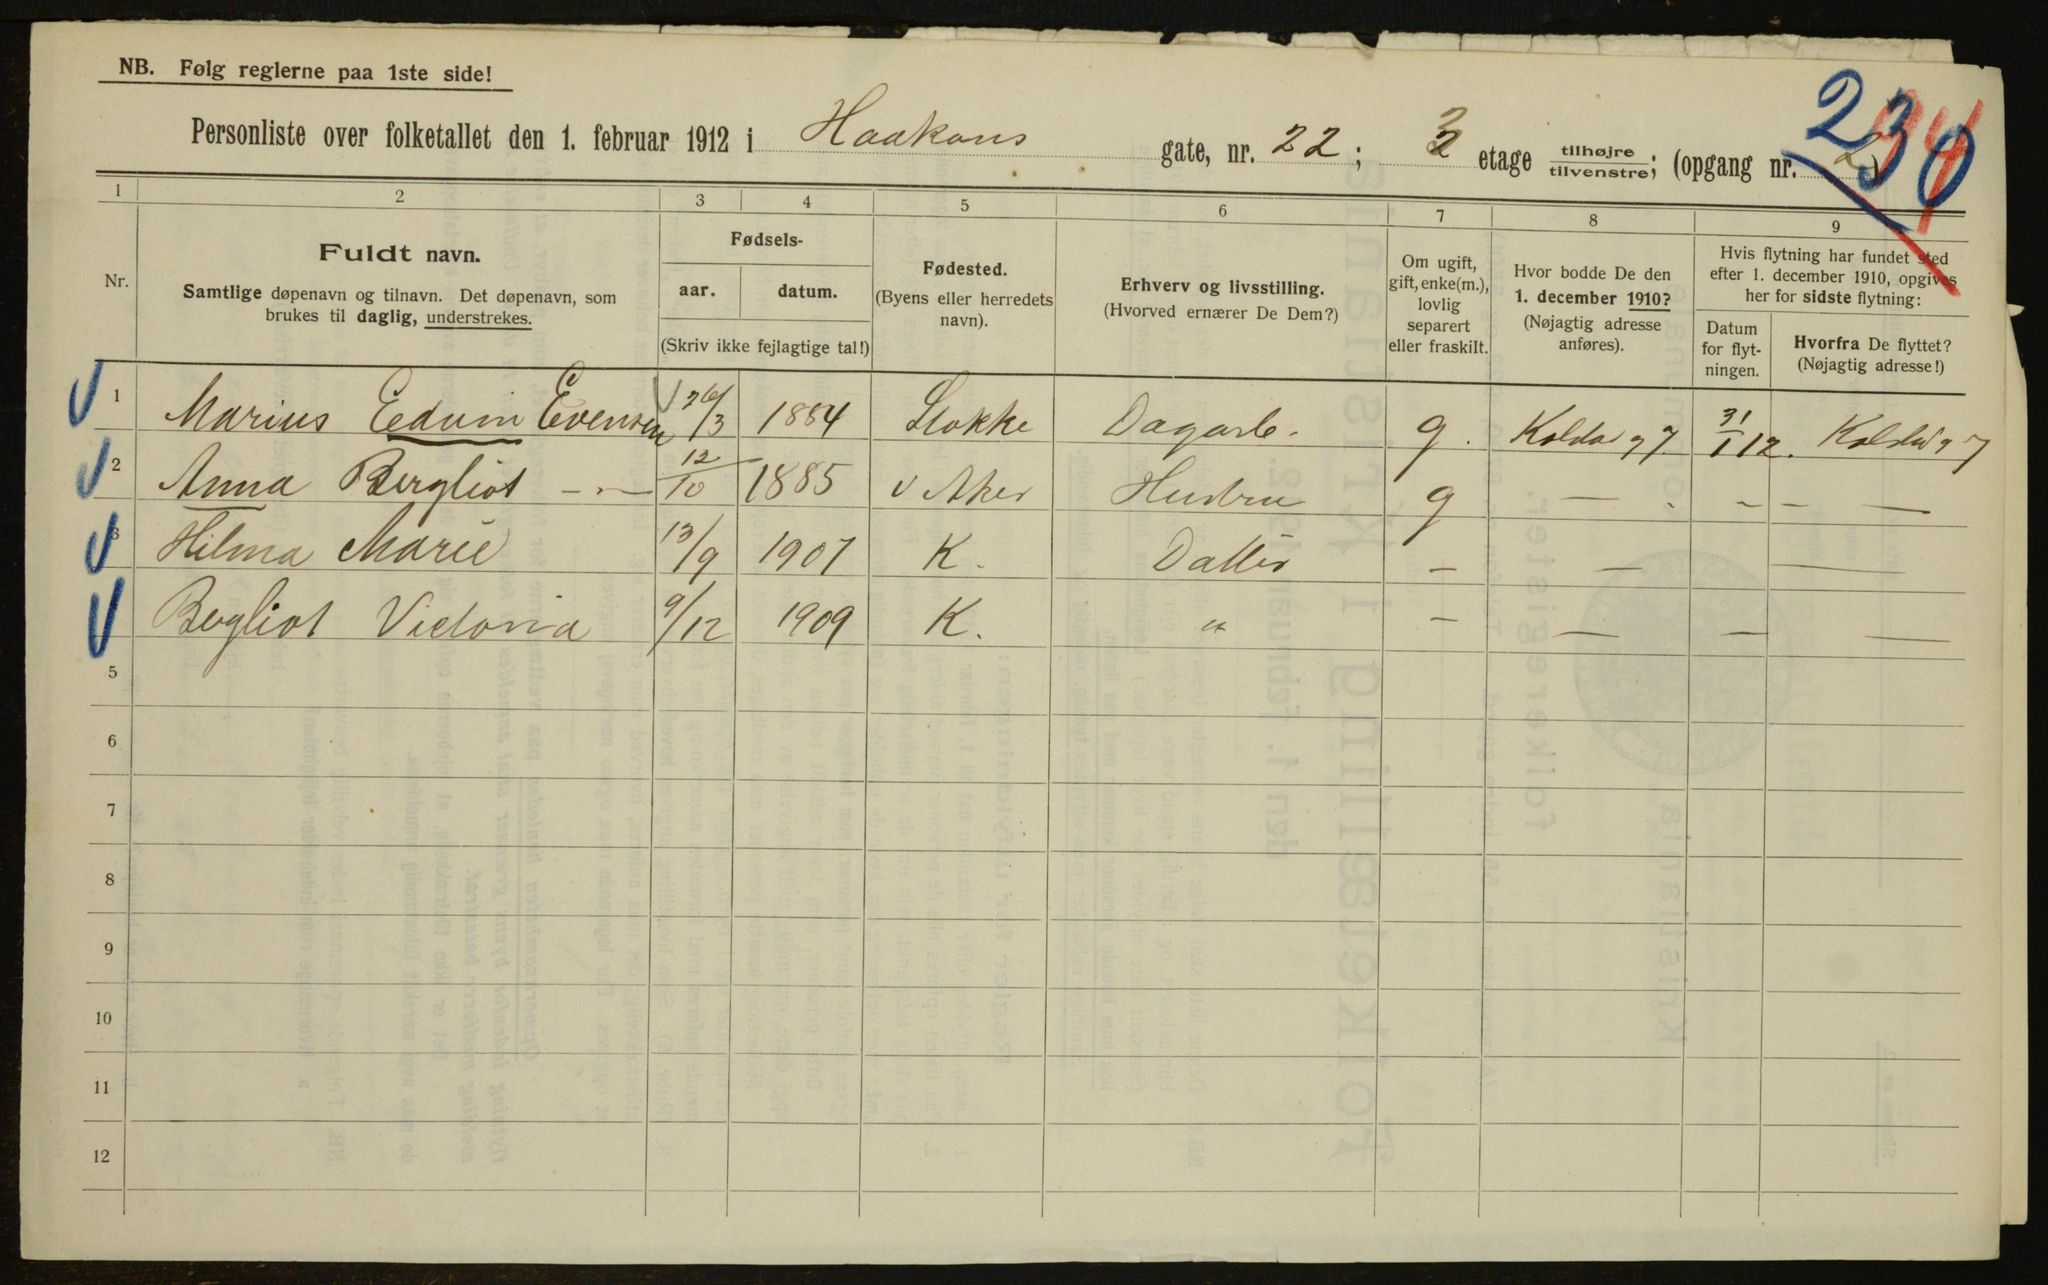 NB. Følg reglerne paa 1ste side!
230
Personliste over folketallet den 1. februar 1912 i Haakons gate, nr. 22; 3 etage tilhøjre / tilvenstre; (opgang nr. 2)
1 2 3 4 5 6 7 8 9
Nr.
Fuldt navn.
Samtlige døpenavn og tilnavn. Det døpenavn, som
brukes til daglig, understrekes.
Fødsels-
aar. datum.
(Skriv ikke fejlagtige tal!)
Fødested.
(Byens eller herredets
navn).
Erhverv og livsstilling.
(Hvorved ernærer De Dem?)
Om ugift,
gift, enke(m.),
lovlig
separert
eller fraskilt.
Hvor bodde De den
1. december 1910?
(Nøjagtig adresse
anføres).
Hvis flytning har fundet sted
efter 1. december 1910, opgives
her for sidste flytning:
Datum
for flyt-
ningen.
Hvorfra De flyttet?
(Nøjagtig adresse!)
1 Marius Edvin Evensen 26/3 1884 Stokke Dagarb. g. 31/1 12.
2 Anna Bergliot -"- 12/10 1885 V Aker Hustru g — — —
3 Hilma Marie 13/9 1907 K. Datter — — —
Bergliot Victoria 9/12 1909 K. " — — — —
5
6
7
8
9
10
11
12